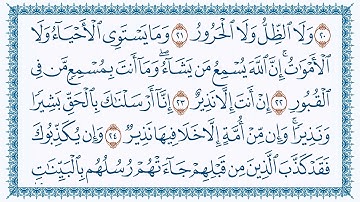 ٢٠ وَلَا ٱلظِّلُّ وَلَا ٱلْحَرُورُ ٢١ وَمَا يَسْتَوِى ٱلْأَحْيَآءُ وَلَا
ٱلْأَمْوَٰتُ ۚ إِنَّ ٱللَّهَ يُسْمِعُ مَن يَشَآءُ ۖ وَمَآ أَنتَ بِمُسْمِعٍ مَّن فِى
ٱلْقُبُورِ ٢٢ إِنْ أَنتَ إِلَّا نَذِيرٌ ٢٣ إِنَّآ أَرْسَلْنَٰكَ بِٱلْحَقِّ بَشِيرًا
وَنَذِيرًا ۚ وَإِن مِّنْ أُمَّةٍ إِلَّا خَلَا فِيهَا نَذِيرٌ ٢٤ وَإِن يُكَذِّبُوكَ
فَقَدْ كَذَّبَ ٱلَّذِينَ مِن قَبْلِهِمْ جَآءَتْهُمْ رُسُلُهُم بِٱلْبَيِّنَٰتِ